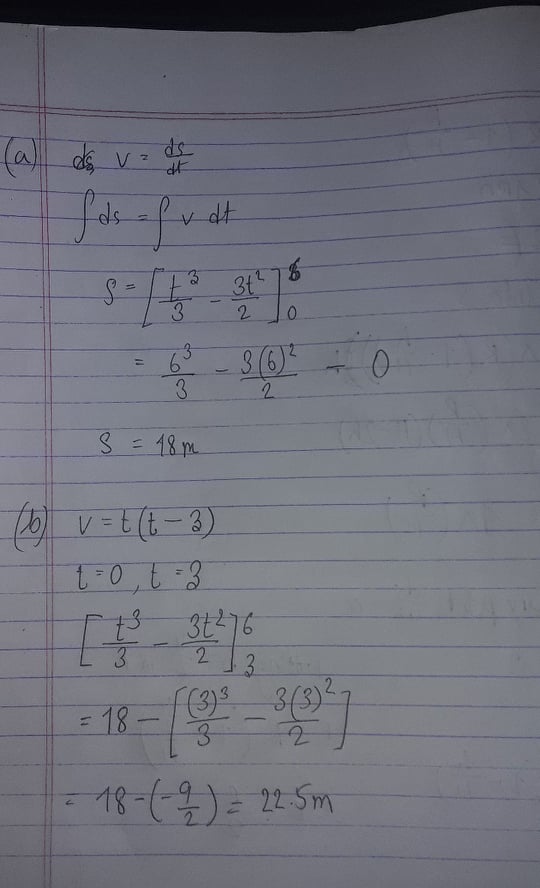 (a) v = ds/dt
∫ds = ∫ v dt
S = [t³/3 - 3t²/2]₀⁶
= 6³/3 - 3(6)²/2 - 0
S = 18m
(b) v = t(t - 3)
t = 0, t = 3
[t³/3 - 3t²/2]₃⁶
= 18 - [(3)³/3 - 3(3)²/2]
= 18 - (-9/2) = 22.5m